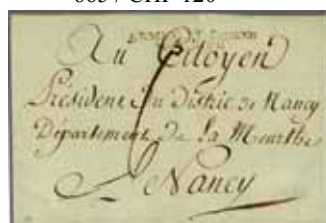 Au Citoyen
Président du District de Nancy
Département de la Meurthe
Nancy